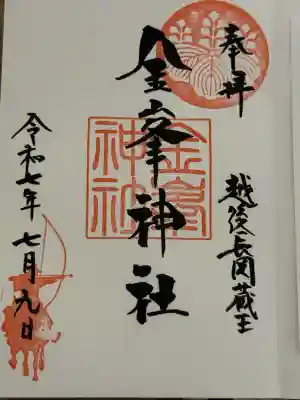 奉拝
越後長岡蔵王
金峯神社
金峯
神社
令和七年七月九日